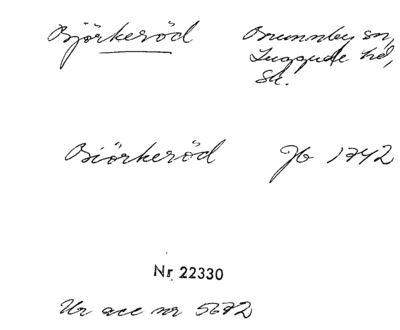 Björkeröd Brunnby sn,
Luggude hd,
Sk.
Biörkeröd Jb 1742
Nr 22330
Ur acc nr 5672